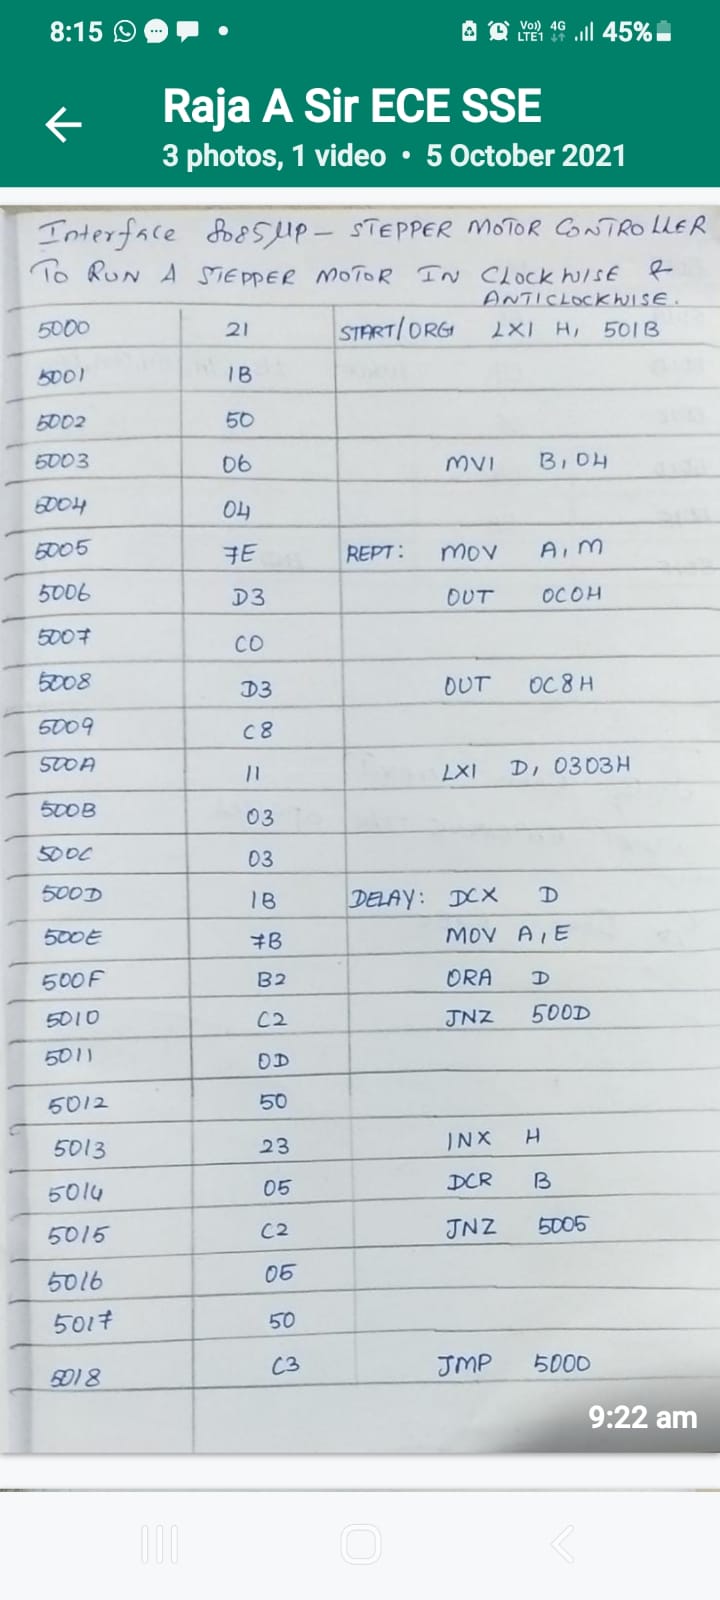 8:15 Vo) LTE1 4G 45%
Raja A Sir ECE SSE
3 photos, 1 video • 5 October 2021
Interface 8085 μP – STEPPER MOTOR CONTROLLER
TO RUN A STEPPER MOTOR IN CLOCKWISE &
ANTICLOCKWISE.
5000 21 START/ORG LXI H, 501B
5001 1B
5002 50
5003 06 MVI B, 04
5004 04
5005 7E REPT: MOV A, M
5006 D3 OUT 0C0H
5007 C0
5008 D3 OUT 0C8H
5009 C8
500A 11 LXI D, 0303H
500B 03
500C 03
500D 1B DELAY: DCX D
500E 7B MOV A, E
500F B2 ORA D
5010 C2 JNZ 500D
5011 0D
5012 50
5013 23 INX H
5014 05 DCR B
5015 C2 JNZ 5005
5016 05
5017 50
5018 C3 JMP 5000
9:22 am